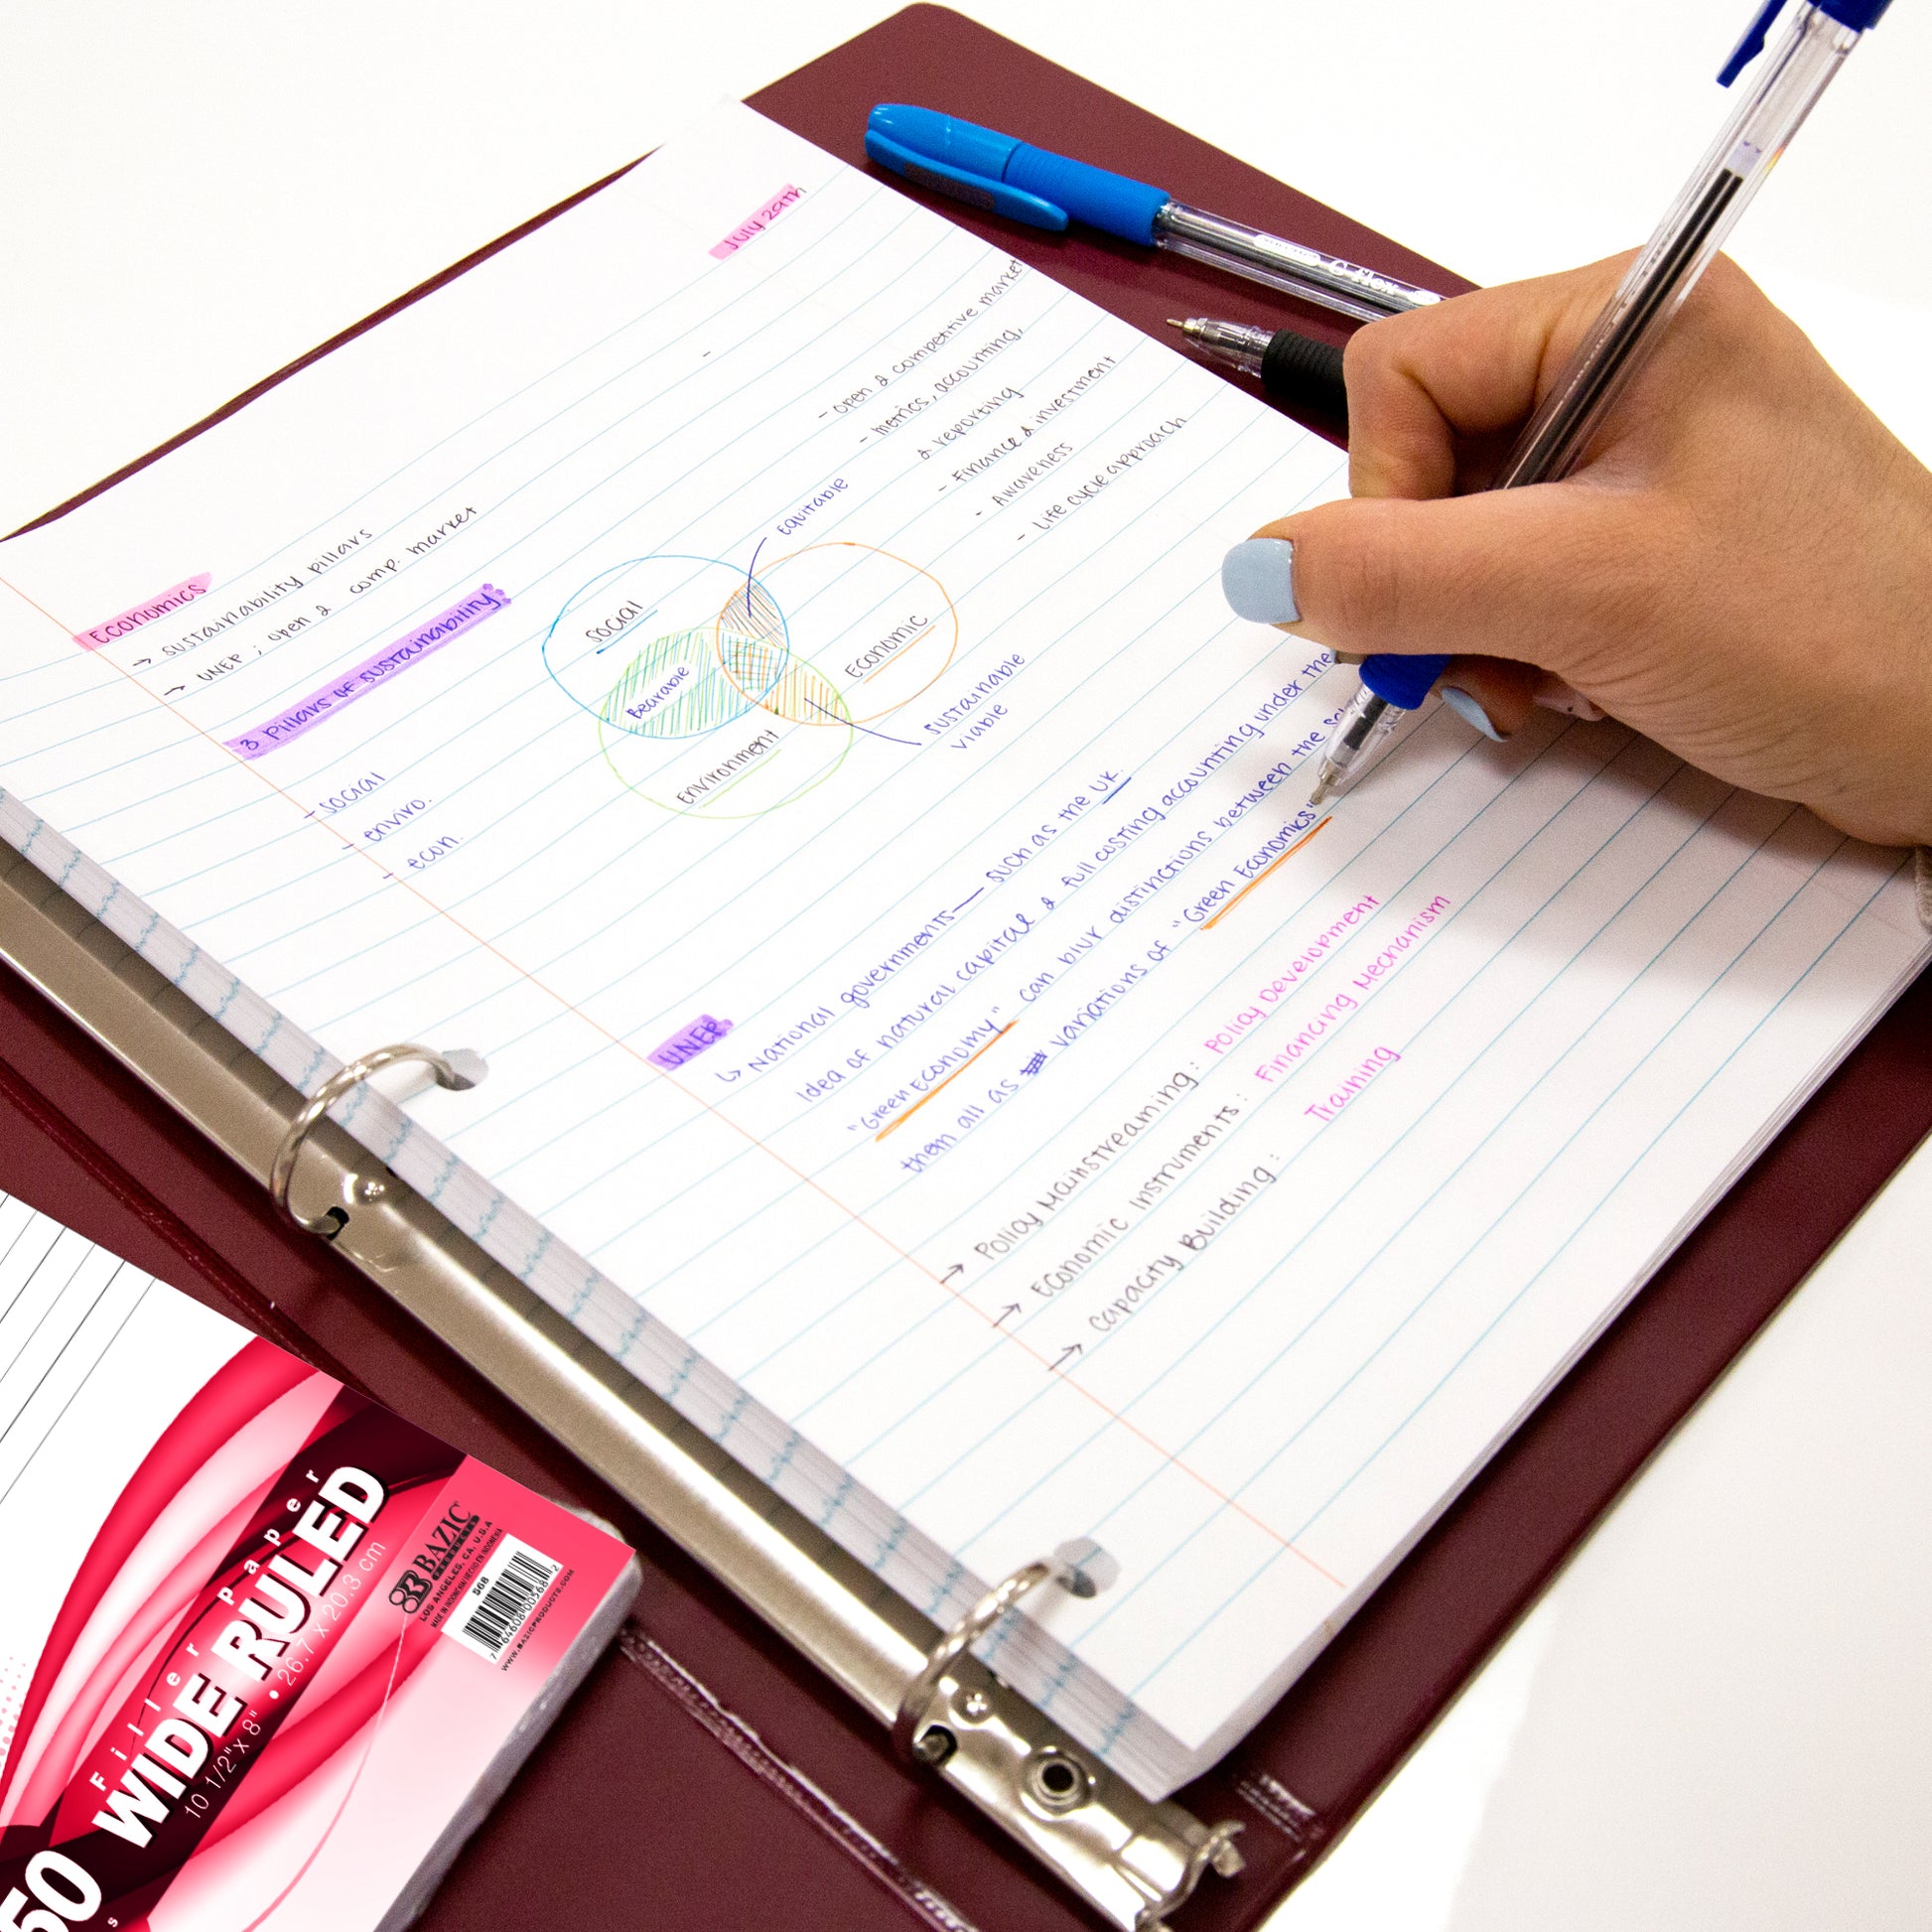 July 29th
Economics
→ sustainability pillars
→ UNEP ; open & comp. market
3 Pillars of Sustainability
- social
- enviro.
- econ.
Social
Economic
Environment
Bearable
Equitable
Sustainable
Viable
- open & competitive market
- metrics, accounting,
& reporting
- Finance & investment
- Awareness
- Life cycle approach
UNEP
↳ National governments — such as the UK.
Idea of natural capital & full costing accounting under the
"Green Economy" can blur distinctions between the
them all as variations of "Green Economics"
→ Policy Mainstreaming : Policy Development
→ Economic Instruments : Financing Mechanism
→ Capacity Building : Training
Filler Paper
WIDE RULED
10 1/2" x 8" • 26.7 x 20.3 cm
50
BAZIC
PRODUCTS
LOS ANGELES, CA, U.S.A
MADE IN INDONESIA/HECHO EN INDONESIA
568
7 64608 00568 2
WWW.BAZICPRODUCTS.COM
G-flex